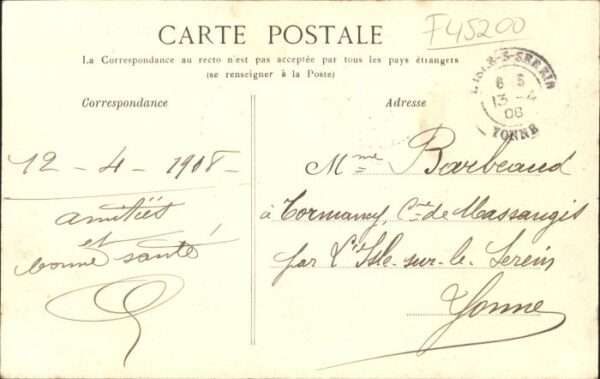 CARTE POSTALE
F45200
La Correspondance au recto n'est pas acceptée par tous les pays étrangers
(se renseigner à la Poste)
Correspondance
Adresse
L'ISLE-S-SEREIN
8 5
13 -4
08
YONNE
12 - 4 - 1908 -
amitiés
et
bonne santé
Mme Barbeaud
à Tormancy, Cne de Massangis
par L'Isle-sur-le-Serein
Yonne